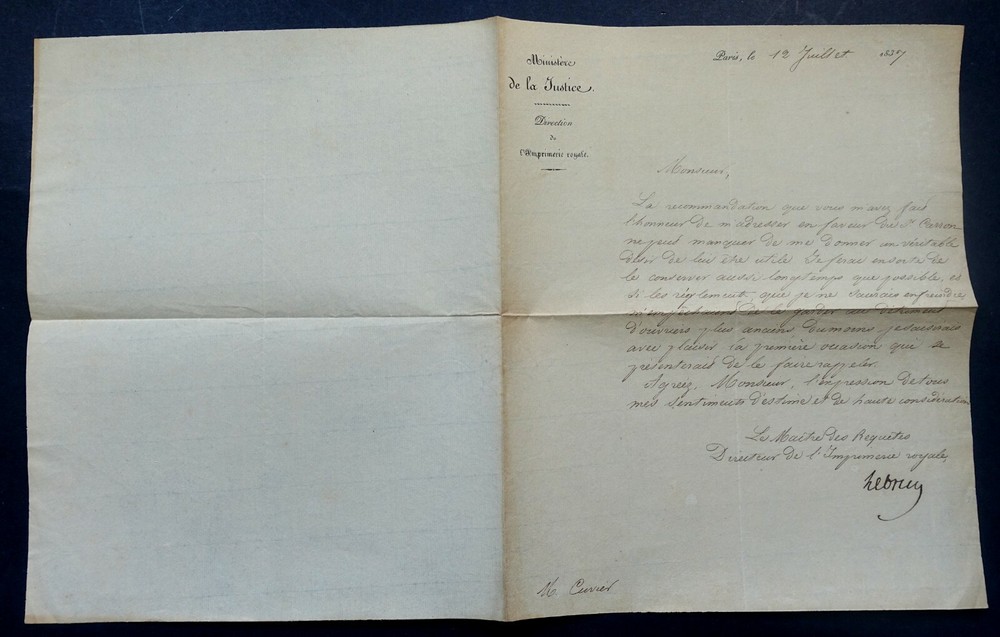 Ministère
de la Justice.
Direction
de
l'Imprimerie royale.
Paris, le 12 Juillet 1837
Monsieur,
La recommandation que vous m'avez fait
l'honneur de m'adresser en faveur du Sr. Carron
ne peut manquer de me donner un véritable
désir de lui être utile. Je ferai ensorte de
le conserver aussi longtemps que possible, et
si les règlements, que je ne saurais enfreindre
m'empêchaient de le garder au détriment
d'ouvriers plus anciens du moins, je saisirais
avec plaisir la première occasion qui se
présenterait de le faire rappeler.
Agréez, Monsieur, l'expression de tous
mes sentiments d'estime et de haute considération
Le Maître des Requêtes
Directeur de l'Imprimerie royale,
Lebrun
M. Cuvier